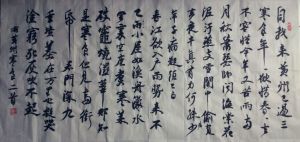 自我来黄州已過三
寒食年年欲惜春春去
不容惜今年又苦雨兩
月秋蕭瑟卧聞海棠花
泥汙燕支雪闇中偷負
去夜半真有力何殊少
年子病起頭已白
春江欲入户雨勢来不
已小屋如漁舟濛濛水
雲裏空庖煮寒菜
破竈燒濕葦那知
是寒食但見烏銜
帋君門深九
重墳墓在万里也擬哭
塗窮死灰吹不起
右黄州寒食二首